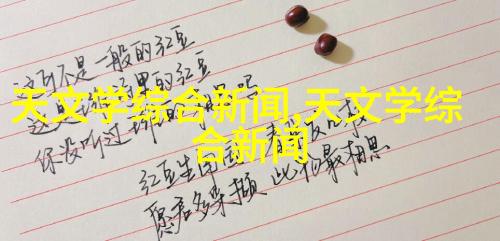 这可不是一般的红豆
里的红豆
天文学综合新闻,天文学综
合新闻
你没听过
吗
红豆生
愿君多采撷 此物最相思